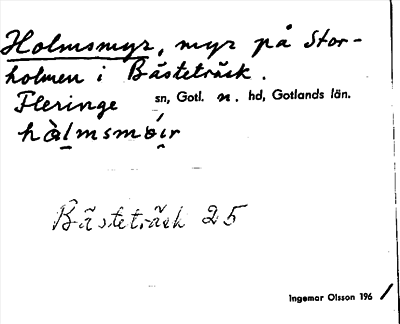 Holmsmyr, myr på Stor-
holmen i Bästeträsk.
Fleringe sn, Gotl. n. hd, Gotlands län.
hàlmsmơír
Bästeträsk 25
Ingemar Olsson 196 1